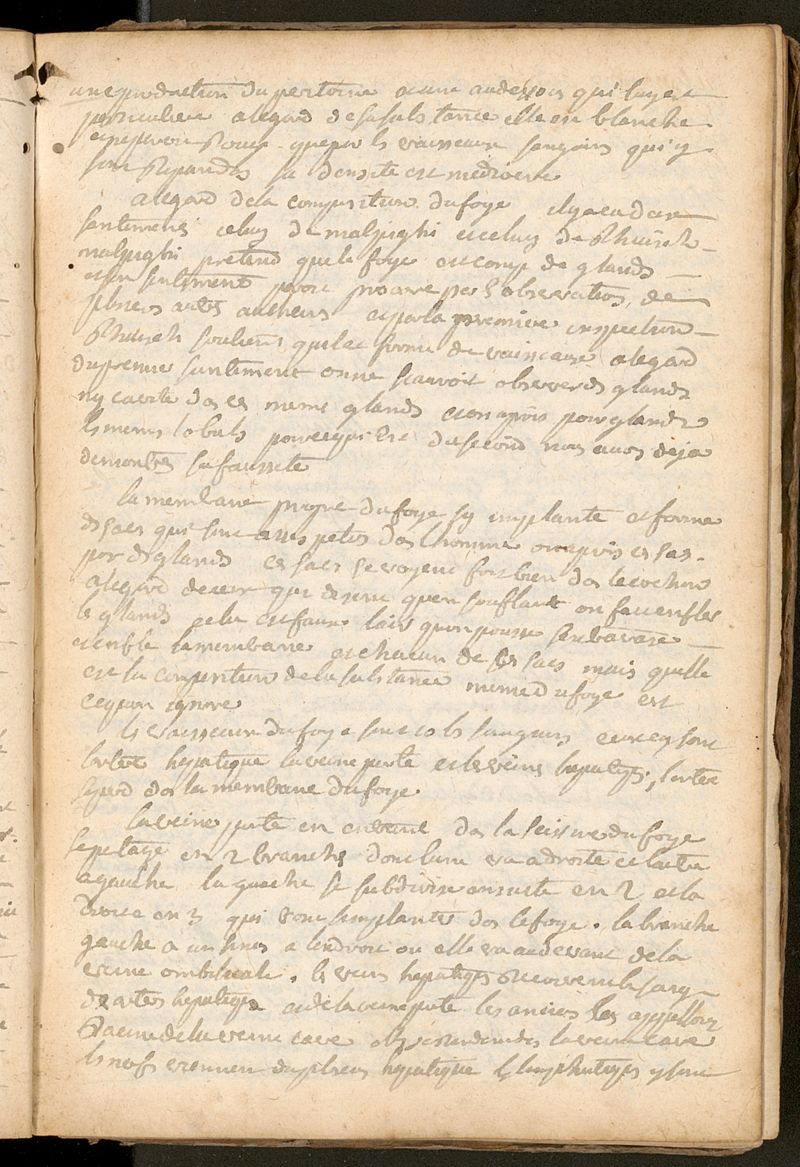 une production du peritoine aune audessous qui luy est
particuliere a legard de sa substance elle est blanche
que par ls vaisseaux sanguins qui y
sont Repandus sa densite est mediocre
a legard de la composition du foye il y a eu deux
sentimens celuy de malpighi et celuy de Rhuisch
malpighi pretend que le foye est comp de glands
sentiment prouve par l observation de
plusrs auteurs et par la premiere inspection
Rhuisch soutient quil est forme de vaisseaux a legard
du premier sentiment on ne scauroit observer ds glands
ny cavite ds es meme glands et on a pris pour glands
ls memes lobuls pour ce qui est du second nous avons deja
demontre sa faussete
la membrane propre du foye sy implante et forme
ds sacs qui sont asses petits ds l homme on a pris es sacs
por ds glands es sacs se voyent fort bien ds le cochon
a legard de ceux qui disent quen soufflant on fait enfler
ls glands cela est faux lair quon pousse
et enfle la membrane et chacun de ses sacs mais quelle
est la composition de la substance meme du foye est
ce quon ignore
ls vaisseaux du foye sont ls sanguins ceux cy sont
lartere hepatique la veine porte et ls veins hepatiqs, larter
se perd ds la membrane du foye
la veine porte en entrant ds la scissure du foye
se partage en 2 branchs dont lune va a droite et lautre
a gauche la gauche se subdivise ensuite en 2 et la
droite en 3 qui vont simplanter ds le foye. la branche
gauche a un sinus a lendroit ou elle va audevant de la
veine ombilicale. ls veins hepatiqs recoivent le sang
de arters hepatiqs et de la veine porte les anciens les appelloint
Racine de la veine cave la veine cave
ls nerfs viennent du plexus hepatique ls lymphatiqs y sont